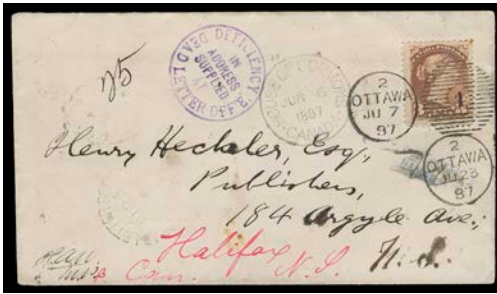 25
DEFICIENCY
IN
ADDRESS
SUPPLIED
AT
DEAD LETTER OFFICE
HOUSE OF COMMONS
JUN 6
1887
CANADA
2
OTTAWA
JU 7
87
2
OTTAWA
JU 23
87
Henry Hechler, Esq.,
Publishers,
184 Argyle Ave.,
Halifax N.S.
Can.